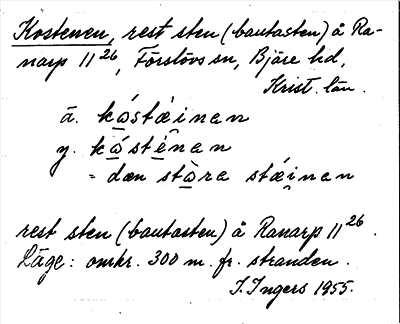 Kostenen, rest sten (bautasten) å Ra-
narp 11²⁶, Förslövs sn, Bjäre hd,
Krist. län.
ä. kǻstæinan
y. kǻsténan
= dæn stɑ̀ra stæ̀inan
rest sten (bautasten) å Ranarp 11²⁶.
Läge: omkr. 300 m. fr. stranden.
I. Ingers 1955.